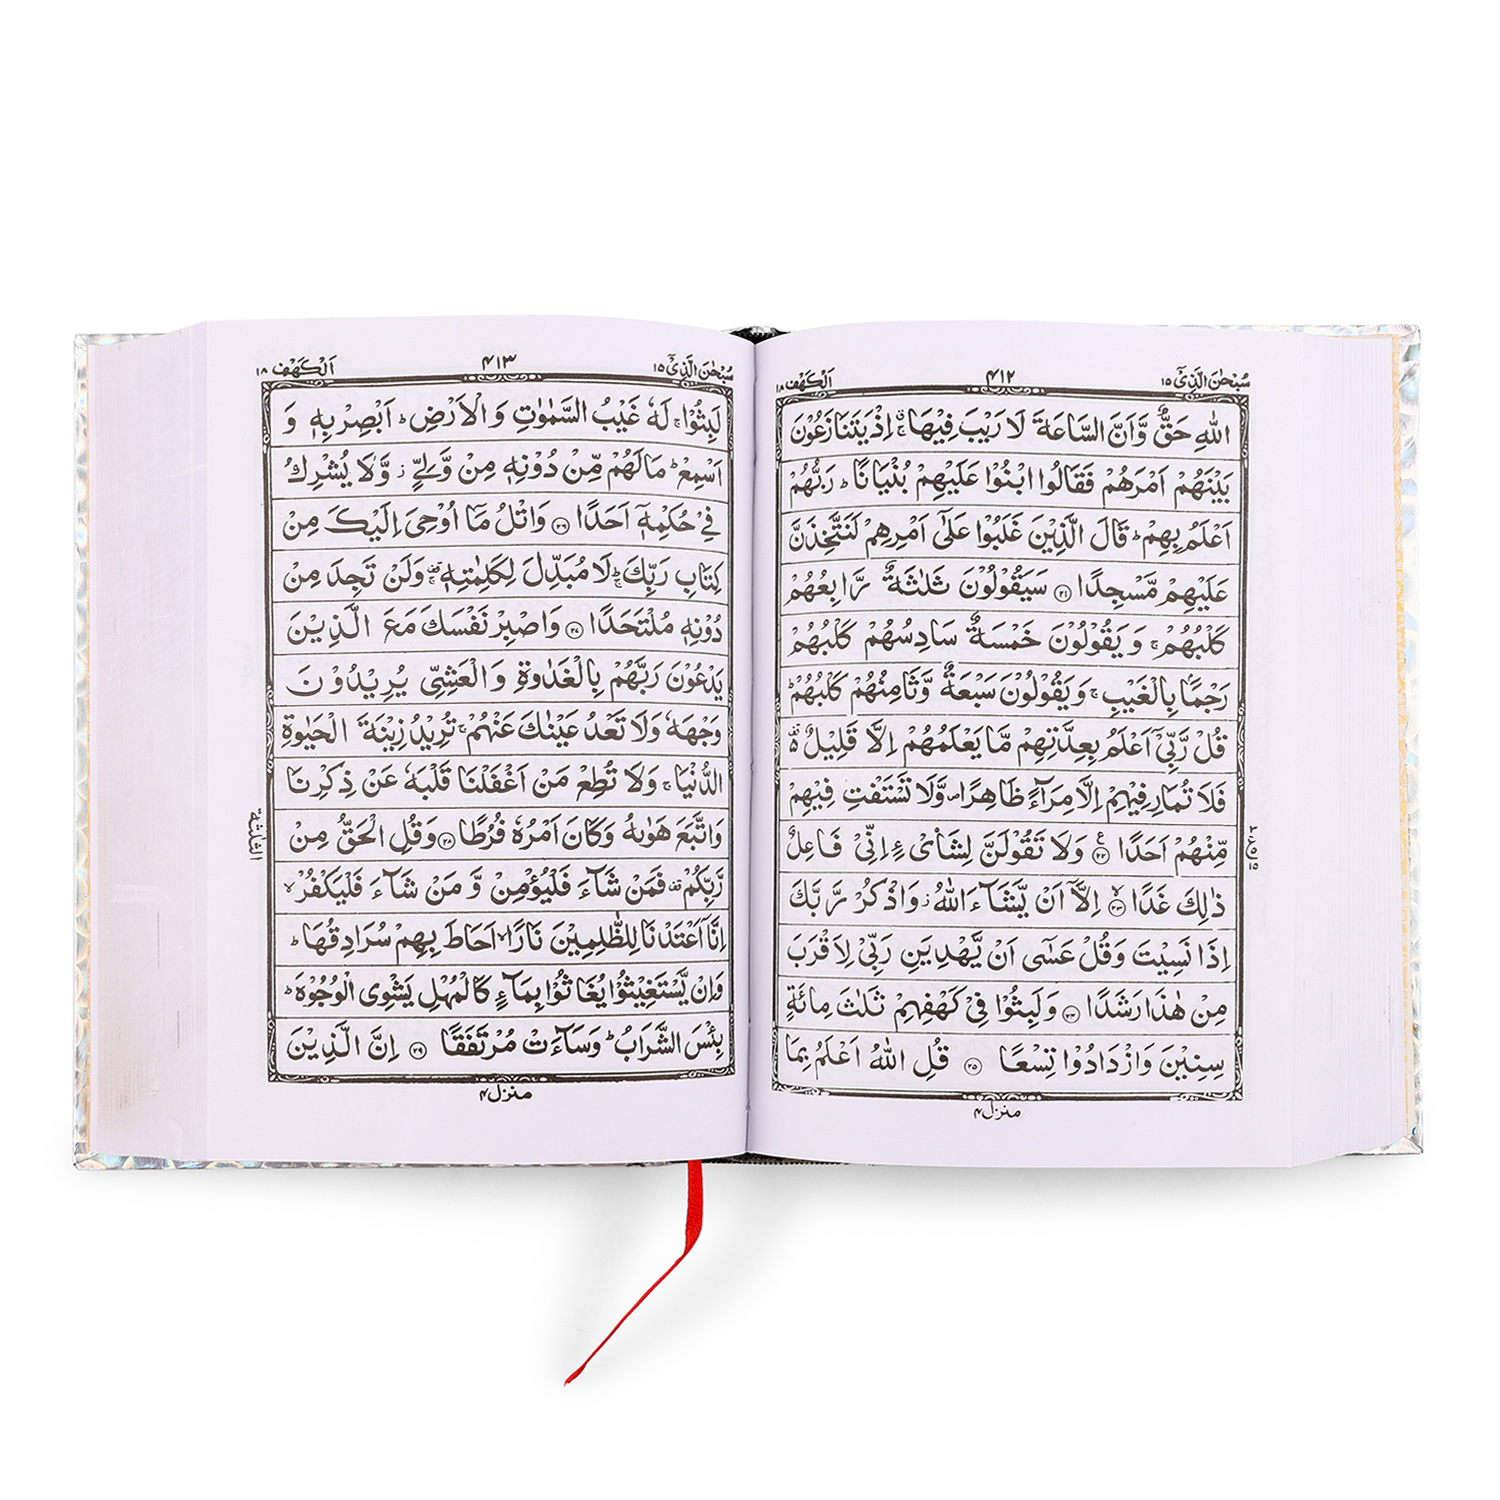 سُبْحٰنَ الَّذِیْۤ ١٥
٤١٢
اَلْكَهْف ١٨
اللّٰهِ حَقٌّ وَّاَنَّ السَّاعَةَ لَا رَيْبَ فِيْهَا ۚ اِذْ يَتَنَازَعُوْنَ
بَيْنَهُمْ اَمْرَهُمْ فَقَالُوا ابْنُوْا عَلَيْهِمْ بُنْيَانًا ؕ رَبُّهُمْ
اَعْلَمُ بِهِمْ ؕ قَالَ الَّذِيْنَ غَلَبُوْا عَلٰۤى اَمْرِهِمْ لَنَتَّخِذَنَّ
عَلَيْهِمْ مَّسْجِدًا ۝٢١ سَيَقُوْلُوْنَ ثَلٰثَةٌ رَّابِعُهُمْ
كَلْبُهُمْ ۚ وَيَقُوْلُوْنَ خَمْسَةٌ سَادِسُهُمْ كَلْبُهُمْ
رَجْمًۢا بِالْغَيْبِ ۚ وَيَقُوْلُوْنَ سَبْعَةٌ وَّثَامِنُهُمْ كَلْبُهُمْ ؕ
قُلْ رَّبِّيْۤ اَعْلَمُ بِعِدَّتِهِمْ مَّا يَعْلَمُهُمْ اِلَّا قَلِيْلٌ ۫
فَلَا تُمَارِ فِيْهِمْ اِلَّا مِرَآءً ظَاهِرًا ۪ وَّلَا تَسْتَفْتِ فِيْهِمْ
مِّنْهُمْ اَحَدًا ۝٢٢ وَلَا تَقُوْلَنَّ لِشَايْءٍ اِنِّيْ فَاعِلٌ
ذٰلِكَ غَدًا ۝٢٣ اِلَّاۤ اَنْ يَّشَآءَ اللّٰهُ ؗ وَاذْكُرْ رَّبَّكَ
اِذَا نَسِيْتَ وَقُلْ عَسٰۤى اَنْ يَّهْدِيَنِ رَبِّيْ لِاَقْرَبَ
مِنْ هٰذَا رَشَدًا ۝٢٤ وَلَبِثُوْا فِيْ كَهْفِهِمْ ثَلٰثَ مِائَةٍ
سِنِيْنَ وَازْدَادُوْا تِسْعًا ۝٢٥ قُلِ اللّٰهُ اَعْلَمُ بِمَا
منزل ٤
سُبْحٰنَ الَّذِیْۤ ١٥
٤١٣
اَلْكَهْف ١٨
لَبِثُوْا ۚ لَهٗ غَيْبُ السَّمٰوٰتِ وَالْاَرْضِ ؕ اَبْصِرْ بِهٖ وَ
اَسْمِعْ ؕ مَا لَهُمْ مِّنْ دُوْنِهٖ مِنْ وَّلِيٍّ ؗ وَّلَا يُشْرِكُ
فِيْ حُكْمِهٖۤ اَحَدًا ۝٢٦ وَاتْلُ مَاۤ اُوْحِيَ اِلَيْكَ مِنْ
كِتَابِ رَبِّكَ ؕۚ لَا مُبَدِّلَ لِكَلِمٰتِهٖ ۫ۚ وَلَنْ تَجِدَ مِنْ
دُوْنِهٖ مُلْتَحَدًا ۝٢٧ وَاصْبِرْ نَفْسَكَ مَعَ الَّذِيْنَ
يَدْعُوْنَ رَبَّهُمْ بِالْغَدٰوةِ وَالْعَشِيِّ يُرِيْدُوْنَ
وَجْهَهٗ وَلَا تَعْدُ عَيْنٰكَ عَنْهُمْ ۚ تُرِيْدُ زِيْنَةَ الْحَيٰوةِ
الدُّنْيَا ۚ وَلَا تُطِعْ مَنْ اَغْفَلْنَا قَلْبَهٗ عَنْ ذِكْرِنَا
وَاتَّبَعَ هَوٰىهُ وَكَانَ اَمْرُهٗ فُرُطًا ۝٢٨ وَقُلِ الْحَقُّ مِنْ
رَّبِّكُمْ ۫ فَمَنْ شَآءَ فَلْيُؤْمِنْ وَّمَنْ شَآءَ فَلْيَكْفُرْ ۙ
اِنَّاۤ اَعْتَدْنَا لِلظّٰلِمِيْنَ نَارًا ۙ اَحَاطَ بِهِمْ سُرَادِقُهَا ؕ
وَاِنْ يَّسْتَغِيْثُوْا يُغَاثُوْا بِمَآءٍ كَالْمُهْلِ يَشْوِي الْوُجُوْهَ ؕ
بِئْسَ الشَّرَابُ ؕ وَسَآءَتْ مُرْتَفَقًا ۝٢٩ اِنَّ الَّذِيْنَ
منزل ٤
الثلثة